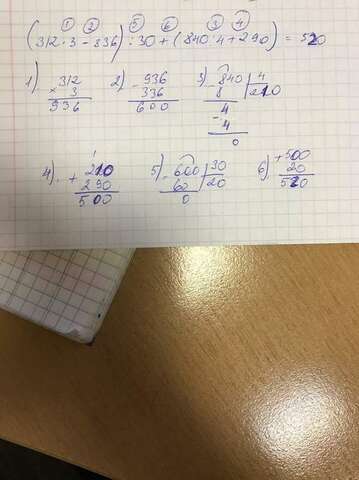 ① ② ⑤ ⑥ ③ ④
(312·3-336):30+(840:4+290)=520
1) 312 2) 936 3) 840 | 4
× 3 - 336 - 8 | 210
936 600 4
- 4
0
4) 210 5) 600 | 30 6) + 500
+ 290 - 60 | 20 20
500 0 520